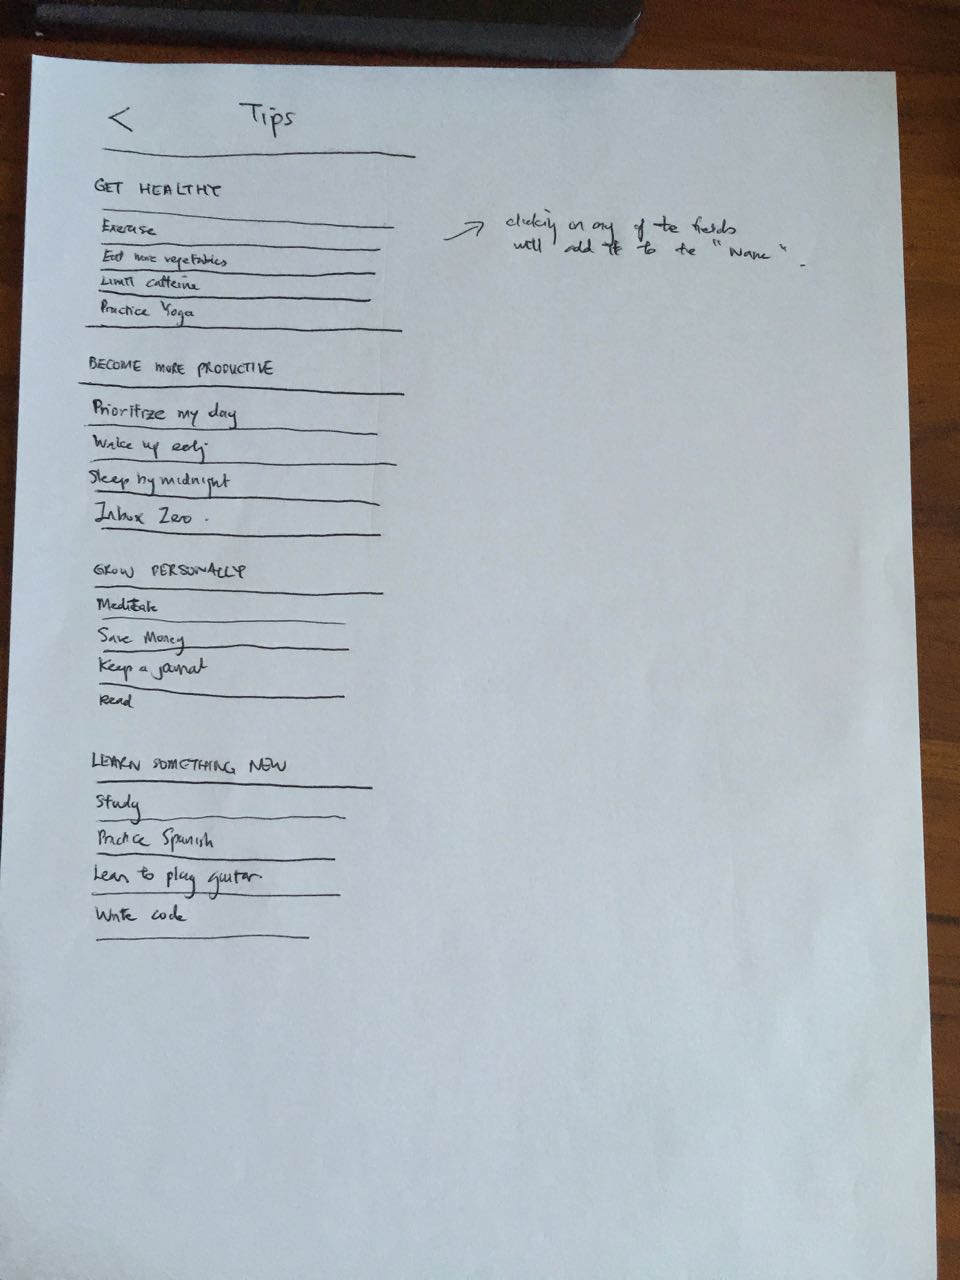 < Tips
GET HEALTHY
Exercise
Eat more vegetables
Limit caffeine
Practice Yoga
BECOME MORE PRODUCTIVE
Prioritize my day
Wake up early
Sleep by midnight
Inbox Zero.
GROW PERSONALLY
Meditate
Save Money
Keep a journal
Read
LEARN SOMETHING NEW
Study
Practice Spanish
Learn to play guitar
Write code
→ clicking on any of the fields
will add it to the "Name".